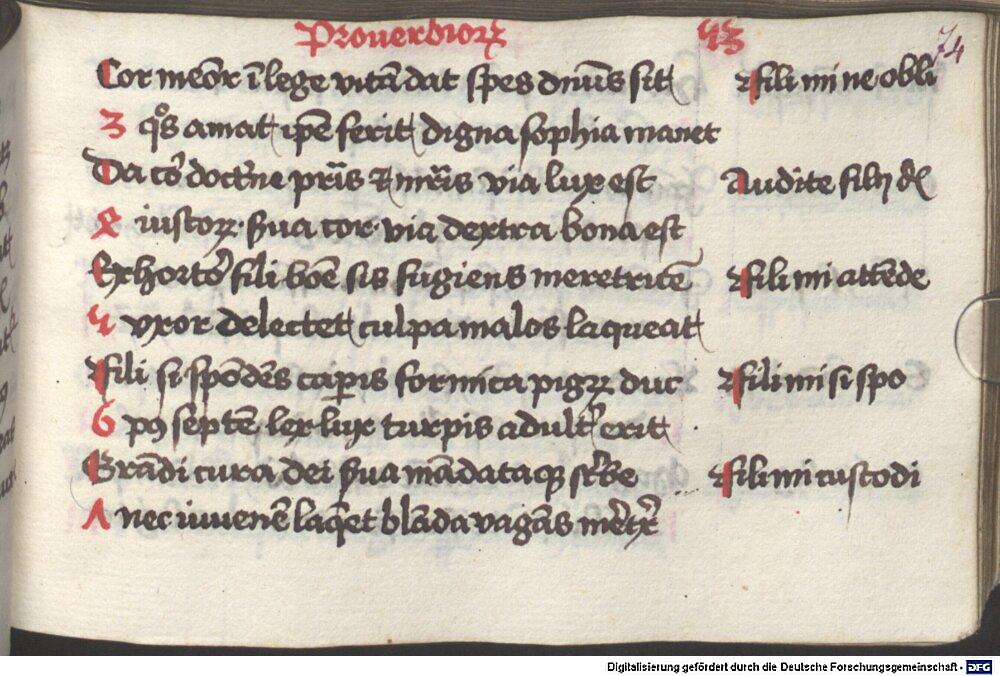 Prouerbiorꝝ 43
74
Cor meōr ī lege vitā dat spes dn̄us sit fili mi ne obli
3 qͦs amat ip̄e ferit digna sophia manet
Da cor doct̄ne pr̄is et mr̄is via lux est Audite filij
4 iustorꝝ sua cor via dextra bona est
Exhortor fili boē sis fugiens meretricē fili mi attēde
5 vxor delectet culpa malos laqueat
Fili si spōdēs caperis formica pigrꝝ duc fili mi si spo
6 septē lex lux turpis adult erit
Grādi cura dei sua mādataqꝫ fili mi custodi
7 nec iuuenē laq̄et blāda vagās
Digitalisierung gefördert durch die Deutsche Forschungsgemeinschaft - DFG